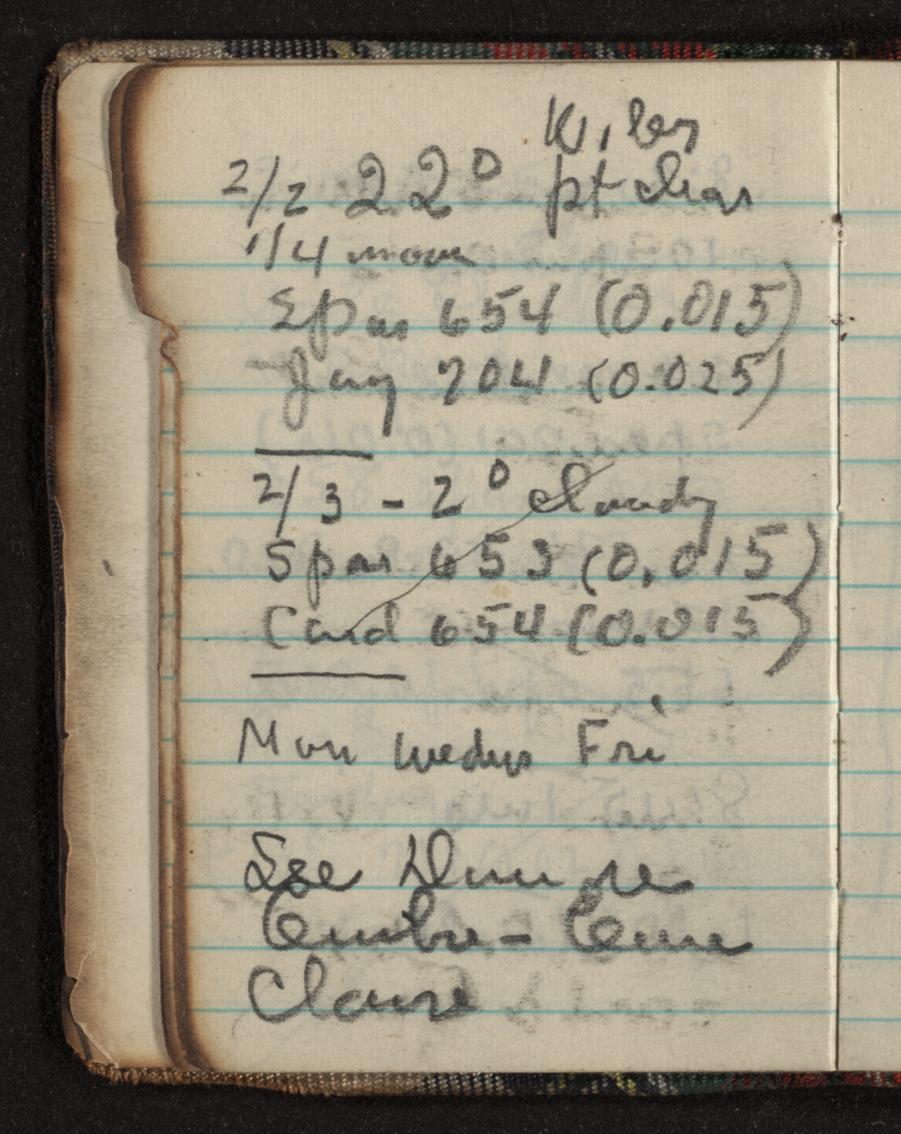 2/2 22° pt clear
1/4 moon
Spar 654 (0.015)
Jay 704 (0.025)
2/3 - 2° cloudy
Spar 653 (0.015)
Card 654 (0.015)
Mon Wedns Fri
See
Clause